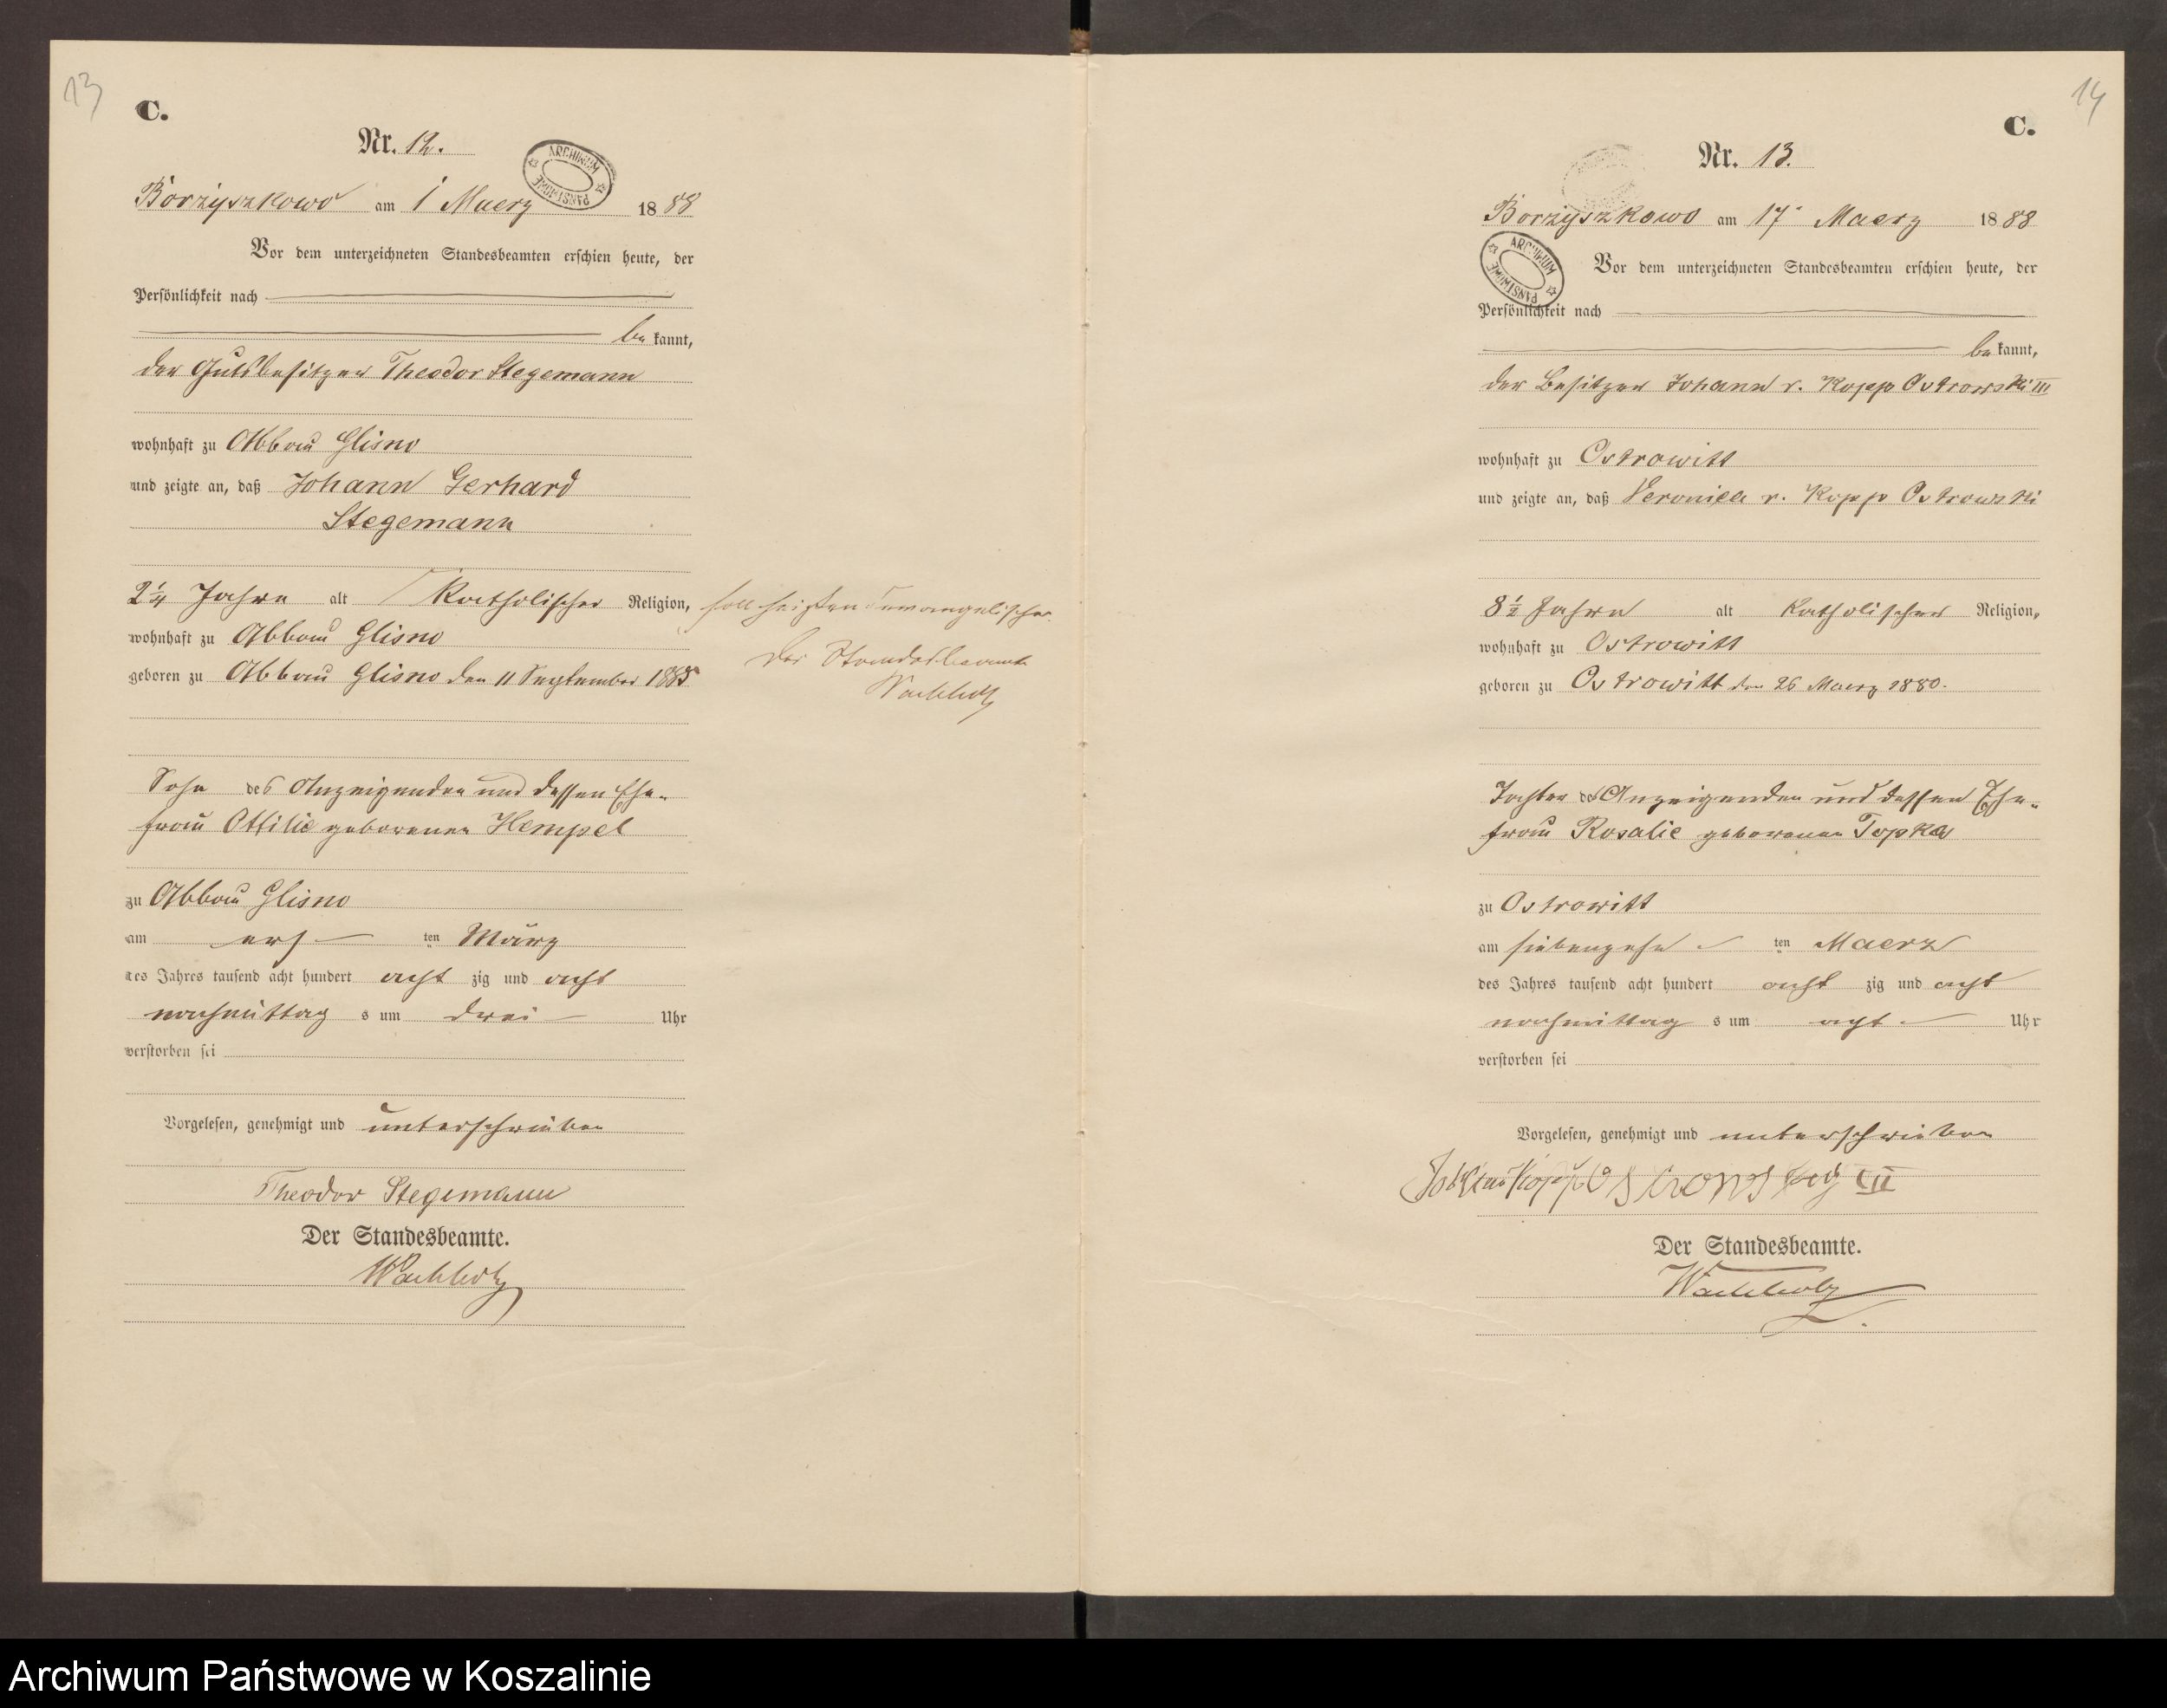 13
C.
Nr. 12.
ARCHIWUM PAŃSTWOWE
Borzyszkowo am 1 Maerz 1888
Vor dem unterzeichneten Standesbeamten erschien heute, der
Persönlichkeit nach
bekannt,
der Gutsbesitzer Theodor Stegemann
wohnhaft zu Abbau Glisno
und zeigte an, daß Johann Gerhard
Stegemann
2 1/4 Jahre alt Katholischer Religion, soll heißen evangelischer
wohnhaft zu Abbau Glisno
Der Standesbeamte
geboren zu Abbau Glisno den 11 September 1885
Wachholz
Sohn des Anzeigenden und dessen Ehe-
frau Ottilie geborenen Hempel
zu Abbau Glisno
am ers ten März
des Jahres tausend acht hundert acht zig und acht
nachmittag s um drei Uhr
verstorben sei
Vorgelesen, genehmigt und unterschrieben
Theodor Stegemann
Der Standesbeamte.
Wachholz
14
C.
Nr. 13.
Borzyszkowo am 17 Maerz 1888
ARCHIWUM PAŃSTWOWE
Vor dem unterzeichneten Standesbeamten erschien heute, der
Persönlichkeit nach
bekannt,
der Besitzer Johann v. Kopp Ostrowski III
wohnhaft zu Ostrowitt
und zeigte an, daß Veronica v. Kopp Ostrowski
8 1/2 Jahre alt Katholischer Religion,
wohnhaft zu Ostrowitt
geboren zu Ostrowitt den 26 Maerz 1880.
Tochter des Anzeigenden und dessen Ehe-
frau Rosalie geborenen Topka
zu Ostrowitt
am siebenzehn ten Maerz
des Jahres tausend acht hundert acht zig und acht
nachmittag s um acht Uhr
verstorben sei
Vorgelesen, genehmigt und unterschrieben
III
Der Standesbeamte.
Wachholz
Archiwum Państwowe w Koszalinie